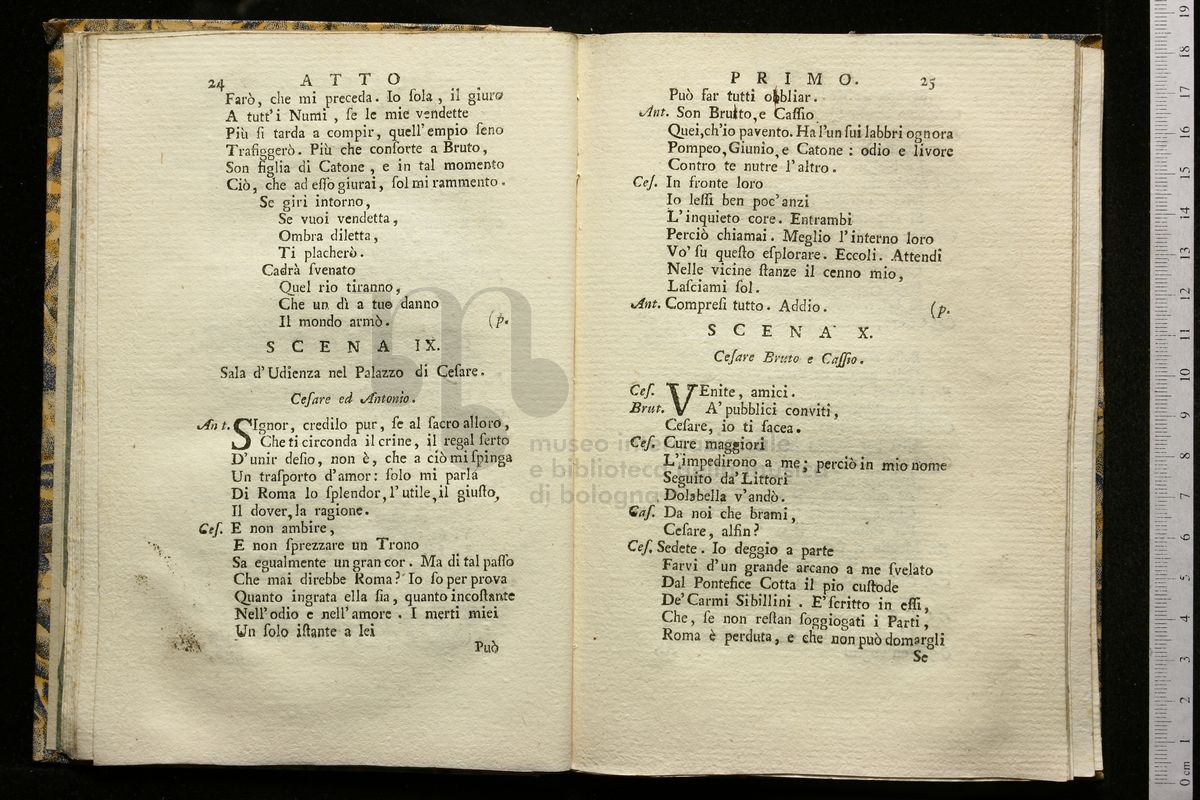 24 ATTO
Farò, che mi preceda. Io ſola, il giuro
A tutt'i Numi, ſe le mie vendette
Più ſi tarda a compir, quell'empio ſeno
Trafiggerò. Più che conſorte a Bruto,
Son figlia di Catone, e in tal momento
Ciò, che ad eſſo giurai, ſol mi rammento.
Se giri intorno,
Se vuoi vendetta,
Ombra diletta,
Ti placherò.
Cadrà ſvenato
Quel rio tiranno,
Che un dì a tuo danno
Il mondo armò. (p.
SCENA IX.
Sala d'Udienza nel Palazzo di Ceſare.
Ceſare ed Antonio.
Ant. SIgnor, credilo pur, ſe al ſacro alloro,
Che ti circonda il crine, il regal ſerto
D'unir deſio, non è, che a ciò mi ſpinga
Un traſporto d'amor: ſolo mi parla
Di Roma lo ſplendor, l'utile, il giuſto,
Il dover, la ragione.
Ceſ. E non ambire,
E non ſprezzare un Trono
Sa egualmente un gran cor. Ma di tal paſſo
Che mai direbbe Roma? Io ſo per prova
Quanto ingrata ella ſia, quanto incoſtante
Nell'odio e nell'amore. I merti miei
Un ſolo iſtante a lei
Può
PRIMO. 25
Può far tutti obbliar.
Ant. Son Bruto, e Caſſio
Quei, ch'io pavento. Ha l'un ſui labbri ognora
Pompeo, Giunio, e Catone: odio e livore
Contro te nutre l'altro.
Ceſ. In fronte loro
Io leſſi ben poc'anzi
L'inquieto core. Entrambi
Perciò chiamai. Meglio l'interno loro
Vo' ſu queſto eſplorare. Eccoli. Attendi
Nelle vicine ſtanze il cenno mio,
Laſciami ſol.
Ant. Compreſi tutto. Addio. (p.
SCENA X.
Ceſare Bruto e Caſſio.
Ceſ. VEnite, amici.
Brut. A' pubblici conviti,
Ceſare, io ti facea.
Ceſ. Cure maggiori
L'impedirono a me; perciò in mio nome
Seguito da' Littori
Dolabella v'andò.
Caſ. Da noi che brami,
Ceſare, alfin?
Ceſ. Sedete. Io deggio a parte
Farvi d'un grande arcano a me ſvelato
Dal Pontefice Cotta il pio cuſtode
De' Carmi Sibillini. E' ſcritto in eſſi,
Che, ſe non reſtan ſoggiogati i Parti,
Roma è perduta, e che non può domargli
Se
museo internazionale
e biblioteca della musica
di bologna
0 cm 1 2 3 4 5 6 7 8 9 10 11 12 13 14 15 16 17 18 19